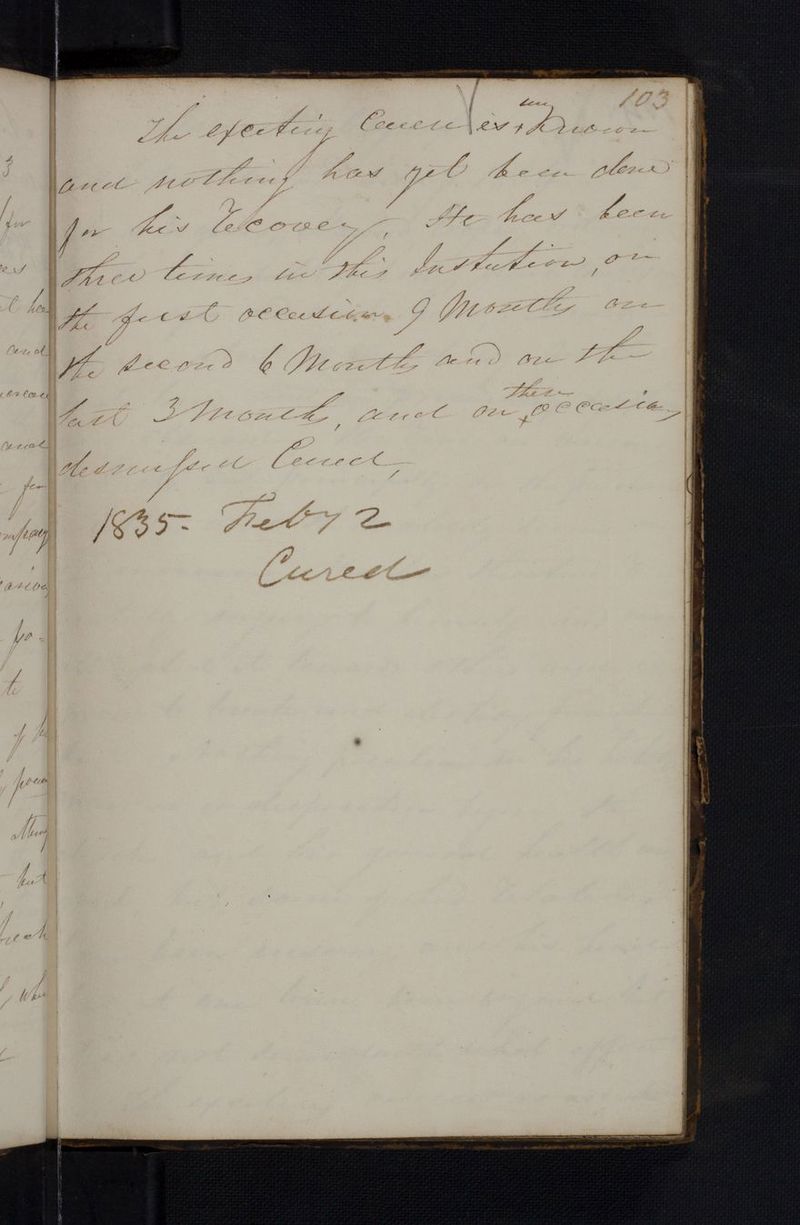 103
The exciting Cause is unknown
and nothing has yet been done
for his recovery, He has been
three times in this Instution, on
the first occasion 9 Months on
the second 6 Months and on the
last 3 Months, and on these occasions
desmissed Cured,
1835- Feby 2
Cured